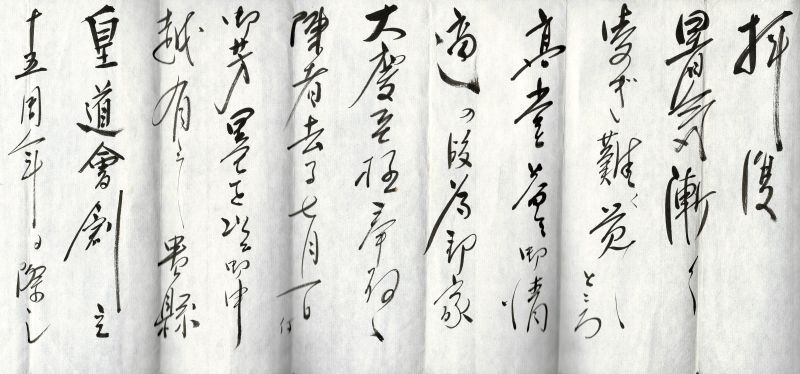 拝復
暑気漸く
凌ぎ難く覚し
ところ
高堂益々御清
適の段為邦家
大慶至極奉存候
陳者去る七月一日付
御芳墨を以て御申
越有之し貴縣
皇道會創立
十五周年に際し